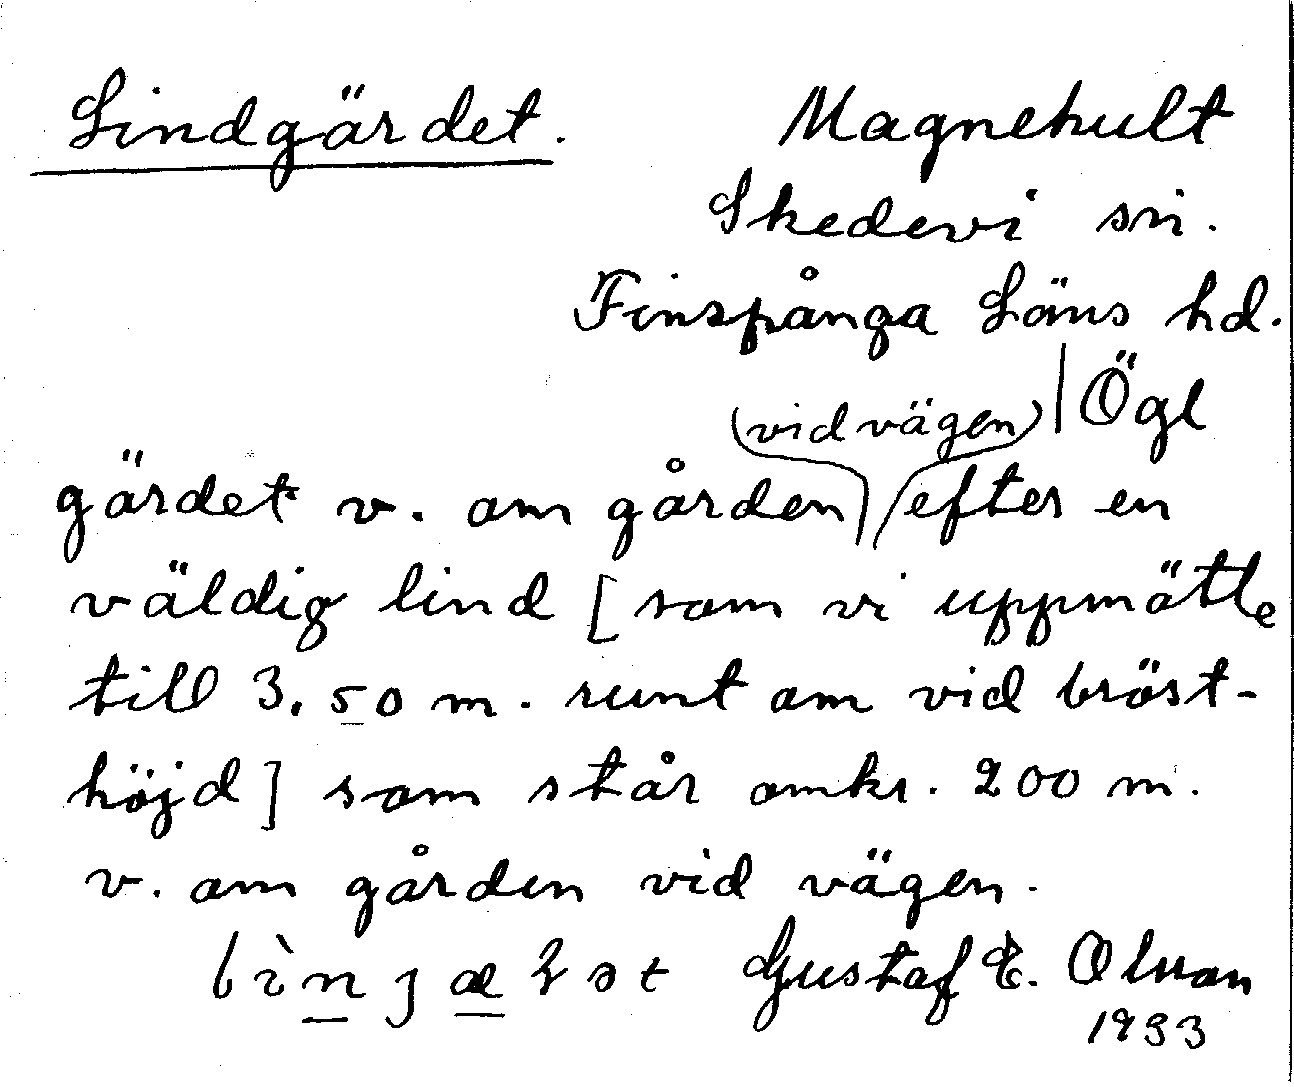 Lindgärdet. Magnehult
Skedevi sn.
Finspånga Läns hd.
Ögl
(vid vägen)
gärdet v. om gården efter en
väldig lind [som vi uppmätte
till 3.50 m. runt om vid bröst-
höjd] som står omkr. 200 m.
v. om gården vid vägen.
Gustaf E. Olson
1933